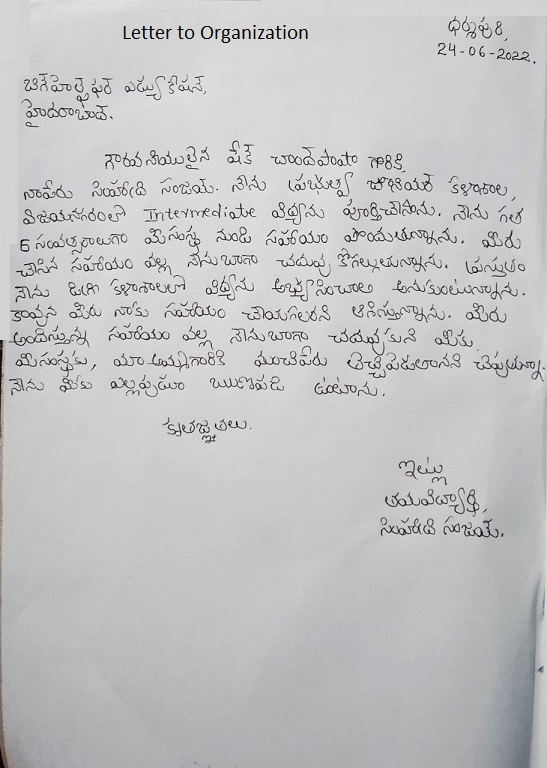 Letter to Organization
ధర్మపురి,
24-06-2022.
బిగ్‌హెల్ప్‌ఫర్ ఎడ్యుకేషన్,
హైదరాబాద్.
గౌరవనీయులైన షేక్ చాంద్‌పాషా గారికి,
నాపేరు సింహాద్రి సంజయ్. నేను ప్రభుత్వ జూనియర్ కళాశాల,
విజయనగరంలో Intermediate విద్యను పూర్తిచేసాను. నేను గత
6 సంవత్సరాలుగా మీసంస్థ నుండి సహాయం పొందుతున్నాను. మీరు
చేసిన సహాయం వల్ల నేనుబాగా చదువు కోగల్గుతున్నాను. ప్రస్తుతం
నేను డిగ్రీ కళాశాలలో విద్యను అభ్యసించాలి అనుకుంటున్నాను.
కావున మీరు నాకు సహాయం చేయగలరని ఆశిస్తున్నాను. మీరు
అందిస్తున్న సహాయం వల్ల నేనుబాగా చదువుకుని మీకు,
మీసంస్థకు, మాఅమ్మగారికి మంచిపేరు తెచ్చిపెడతానని చెప్పుతున్నా.
నేను మీకు ఎల్లప్పుడూ ఋణపడి ఉంటాను.
కృతజ్ఞతలు.
ఇట్లు
తమవిద్యార్థి,
సింహాద్రి సంజయ్.